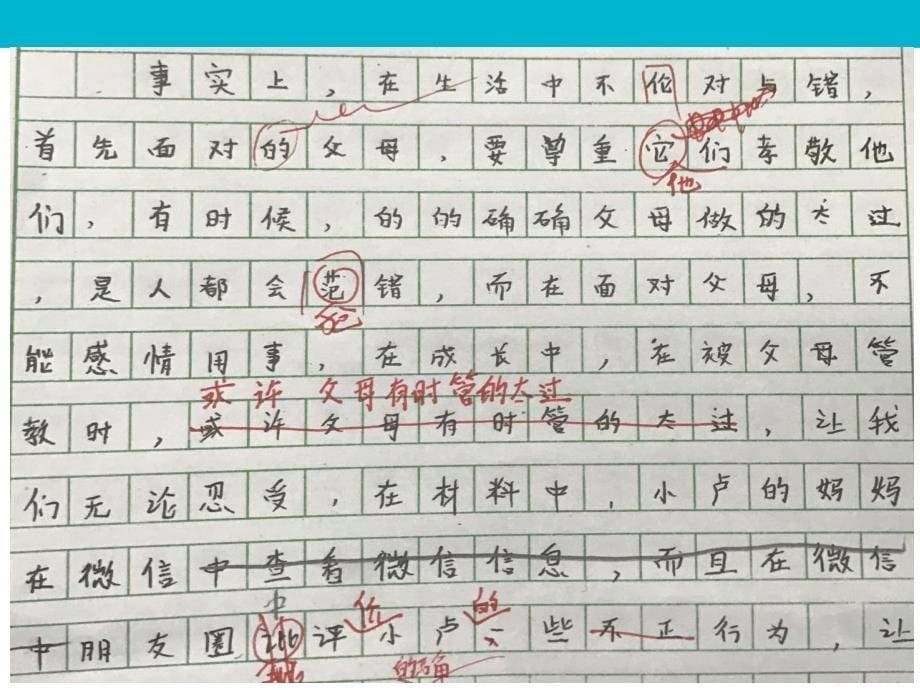 事实上，在生活中不伦对与错，
首先面对的父母，要尊重它们孝敬他
他
们，有时候，的的确确父母做的太过
，是人都会范错，而在面对父母，不
犯
能感情用事，在成长中，在被父母管
或许父母有时管的太过
教时，或许父母有时管的太过，让我
们无论忍受，在材料中，小卢的妈妈
在微信中查看微信信息，而且在微信
中 价 的
中朋友圈评小卢一些不正行为，让
的确